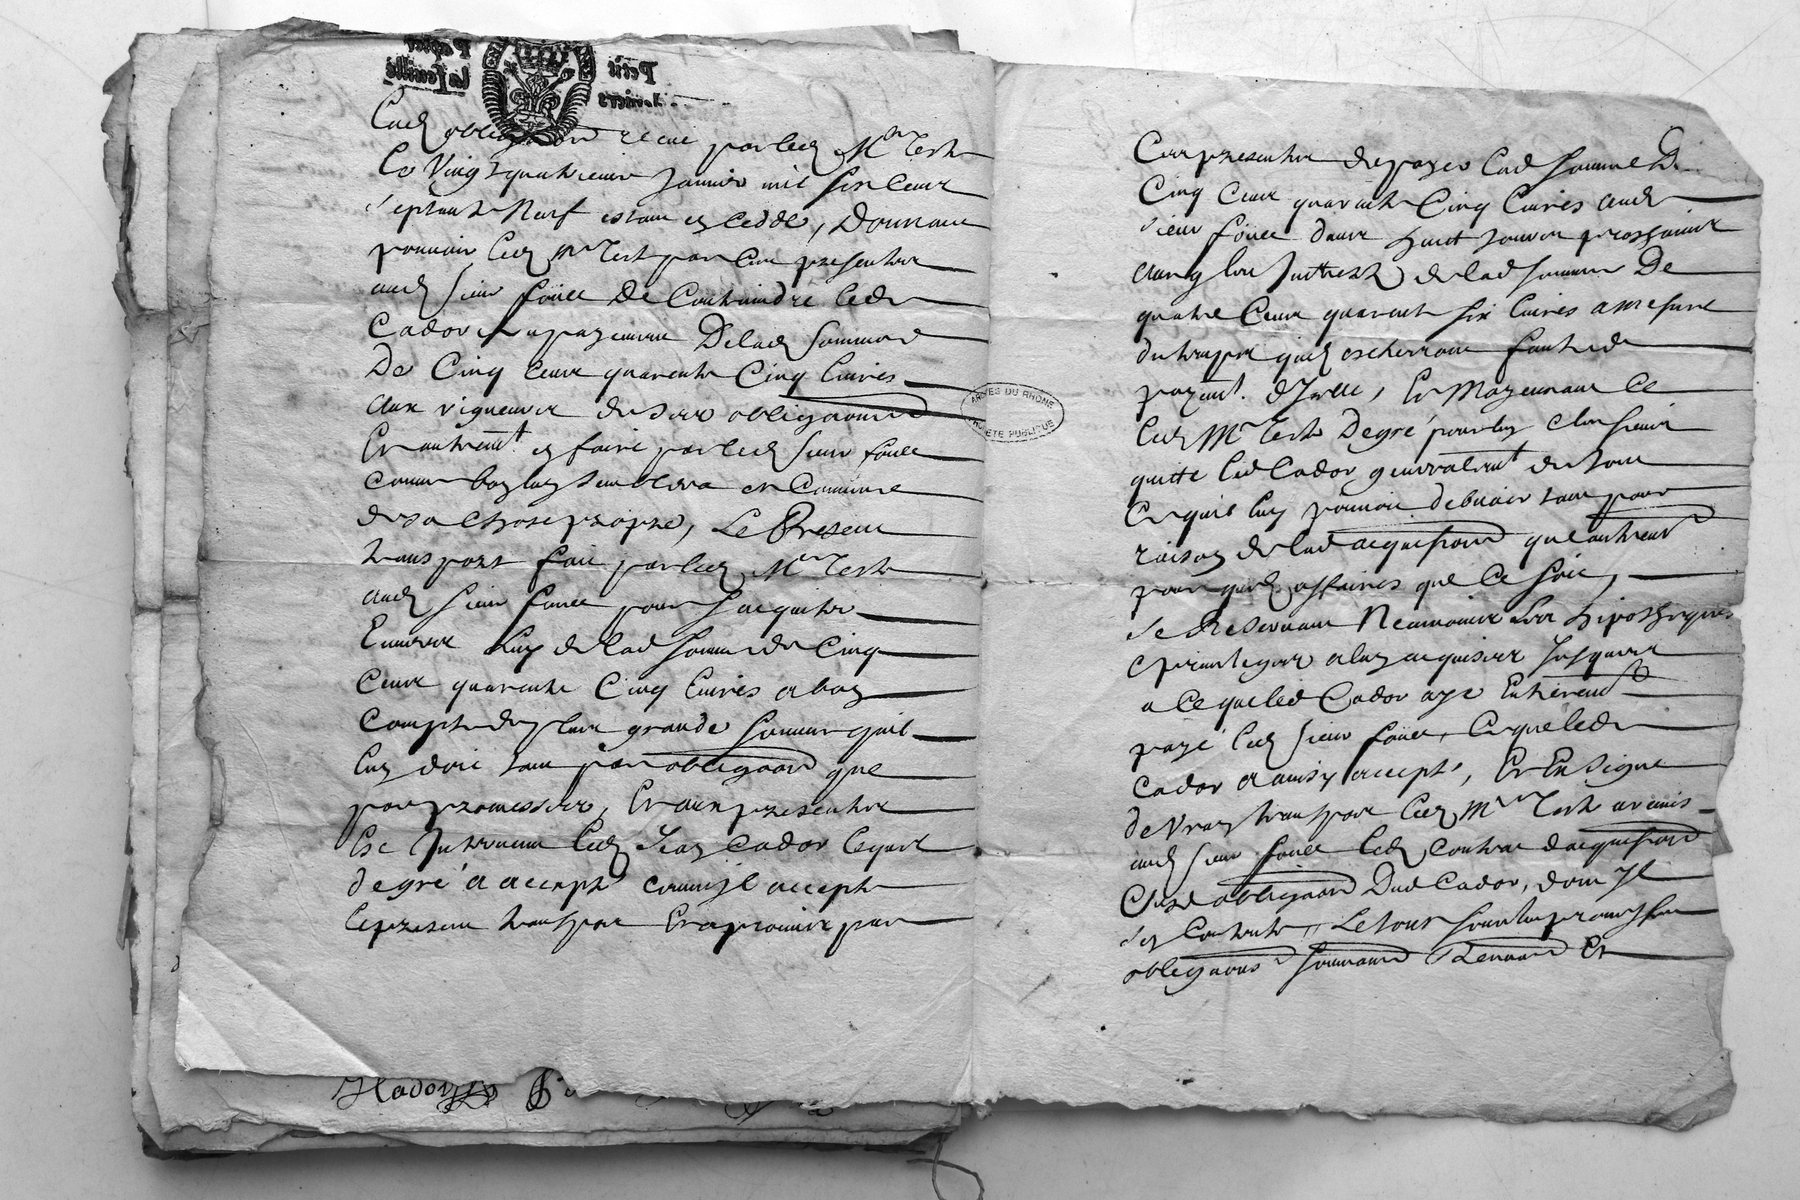 Petit Papier
deniers la feuille
Lad obligation receue par led Mr Teste
Le Vingt quatrieme Janvier mil six Cent
septante Neuf estant en cedde, Donnant
pouvoir led Mr Teste par Ces presentes
aud sieur fouee De Contraindre led
Cador au payement De lad somme
De Cinq Cent quarante Cinq livres
aux rigueurs de son obligation
Et autremt en faire par led sieur fouee
comme bon luy semblera et Comme
de sa chose propre, Le Present
transport fait par led Mr Teste
aud sieur fouee pour s'acquiter
Envers luy de lad somme de Cinq
Cent quarante Cinq livres a bon
Compte de plus grande somme quil
luy doit tant par obligation que
par promesses, Et aux presentes
Est Intervenu led Jean Cador lequel
de gré a accepté comme il accepte
le present transport Et a promis par
Ces presentes de payer lad somme De
Cinq Cent quarante Cinq livres aud
sieur fouee dans huict jours prochains
avec les Interests de lad somme De
quatre Cent quarante six livres a mesure
du temps quils escherront faute de
payemt. d'Icelle, Et Moyennant Ce
led Mr Teste De gré pour luy et les siens
quitte led Cador generalemt de tout
Ce quil luy pouvoit debvoir tant pour
raison de lad acquisition que autremt
pour quels affaires que Ce soit,
se Reservant Neanmoins les hipotheques
et privileges a luy acquises jusques
a Ce que led Cador aye Entieremt
payé led sieur fouee, Ce que led
Cador a aussy accepté, Et En signe
de vray transport led Mr Teste a remis
aud sieur fouee led Contrat d'acquisition
Et lad obligation Dud Cador, dont Il
s'en Contente, Le tout sous les promesses
obligations soumissions Renonons Et
ARCHIVES DU RHONE
PROPRIETE PUBLIQUE
JCador